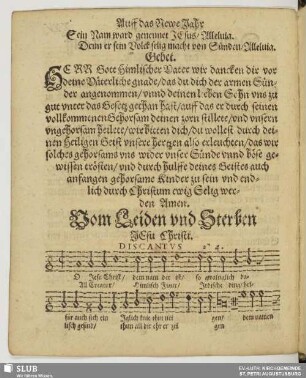 Auff das Newe Jahr
Sein Nam ward genennet JEsus/ Alleluia.
Denn er sein Volck selig macht von Sünden/ Alleluia.
Gebet.
HERR Gott Himlischer Vater wir dancken dir vor
deine Väterliche gnade/ das du dich der armen Sün-
der angenommen/ vnnd deinen lieben Sohn vns zu
gut vnter das Gesetz gethan hast/ auff das er durch seinen
vollkommenen Gehorsam deinen zorn stillete/ vnd vnsern
vngehorsam heilete/ wir bitten dich/ du wollest durch dei-
nen Heiligen Geist vnsere hertzen also erleuchten/ das wir
solches gehorsams vns wider vnser Sünde vnnd böse ge-
wissen trösten/ vnd durch hülffe deines Geistes auch
anfangen gehorsame Kinder zu sein vnd end-
lich durch Christum ewig Selig wer-
den Amen.
Vom Leiden vnd Sterben
JEsu Christi.
DISCANTVS
O Jesu Christ/ dem nam der ist/ so
All Creatur/ Himlisch Figur/
für auch sich ein Jglich knie thut nei gen/ dem
thun all dir ehr er zei gen
SLUB
Wir führen Wissen.
EV.-LUTH. KIRCHGEMEINDE
ST. PETRI AUGUSTUSBURG